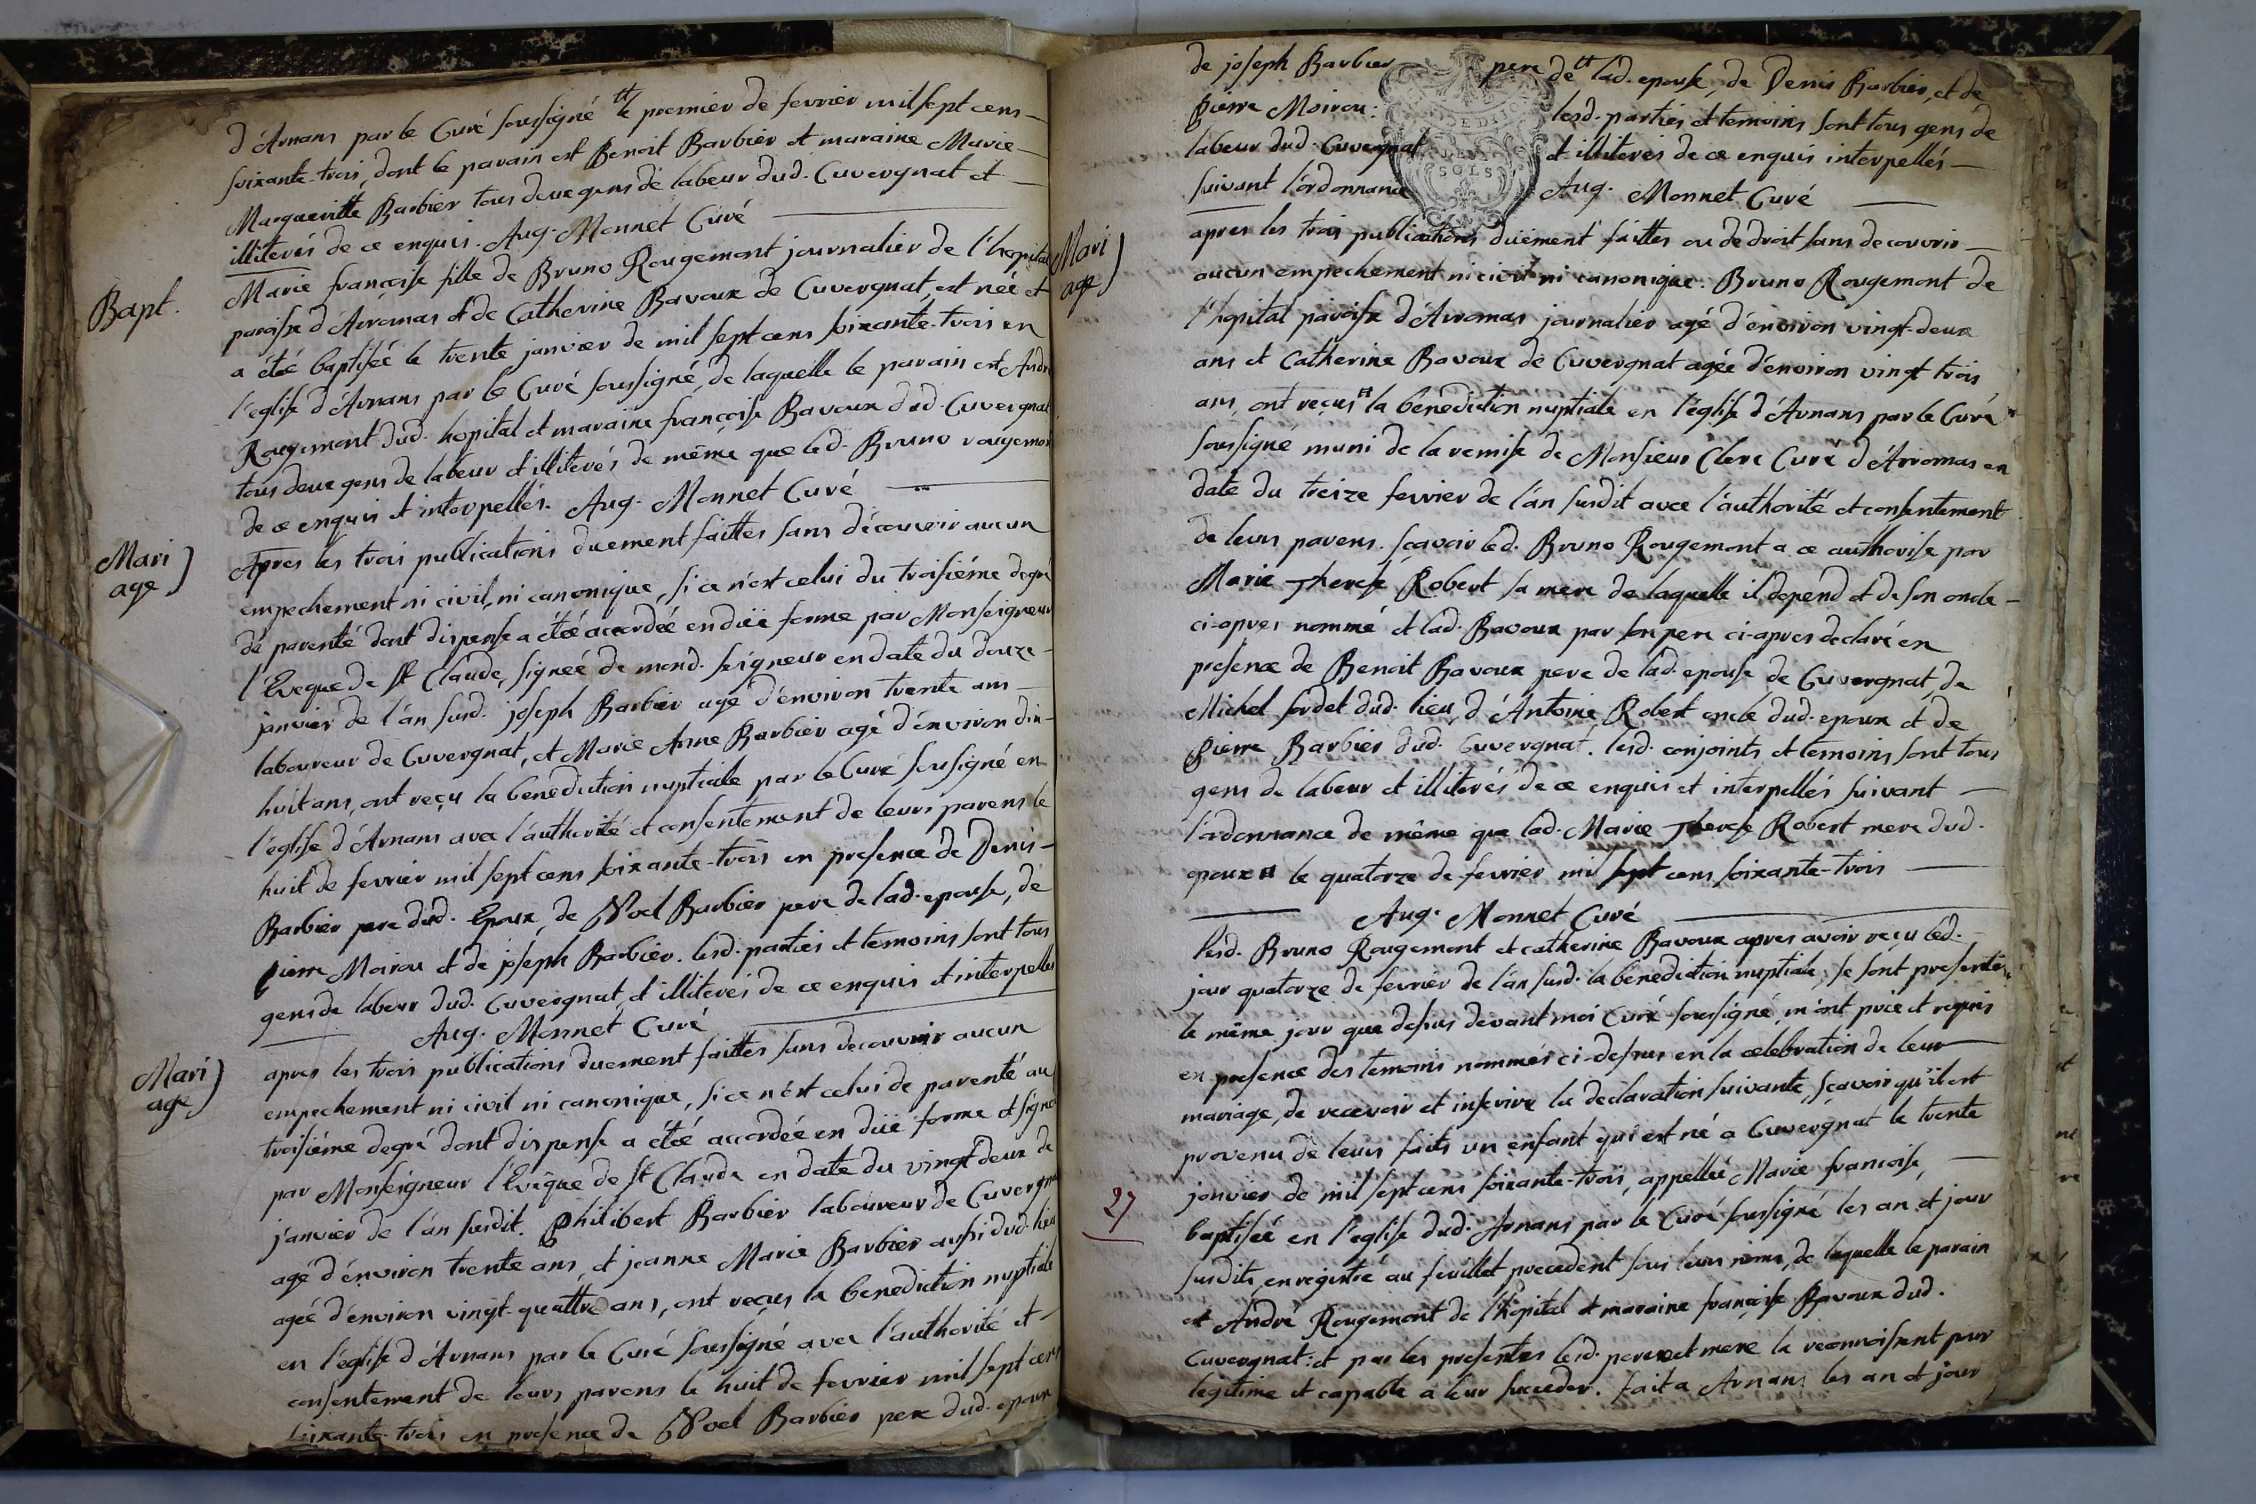 d'Arnans par le Curé soussigné le premier de fevrier mil sept cens
soixante-trois, dont le parain est Benoit Barbier et maraine Marie
Margueritte Barbier tous deux gens de labeur dud. Cuvergnat et
illiterés de ce enquis. Aug. Monnet Curé
Bapt.
Marie françoise fille de Bruno Rougemont journalier de l'hopital
paroisse d'Arromas et de Catherine Bavoux de Cuvergnat, est née et
a étée baptisée le trente janvier de mil sept cens soixante-trois en
l'eglise d'Arnans par le Curé soussigné, de laquelle le parain est André
Rougemont dud. hopital et maraine françoise Bavoux dud. Cuvergnat
tous deux gens de labeur et illiterés de même que led. Bruno rougemont
de ce enquis et interpellés. Aug. Monnet Curé
Mari
age)
Apres les trois publications duement faittes sans découvrir aucun
empechement ni civil, ni canonique, si ce n'est celui du troisiéme degré
de parenté dont dispense a étée accordée en düe forme par Monseigneur
l'Eveque de St Claude, signée de mond. seigneur en date du douze
janvier de l'an susd. joseph Barbier agé d'environ trente ans
laboureur de Cuvergnat, et Marie Anne Barbier agé d'environ dix-
huit ans, ont reçu la benediction nuptiale par le Curé soussigné en
l'eglise d'Arnans avec l'authorité et consentement de leurs parens le
huit de fevrier mil sept cens soixante-trois en presence de Denis
Barbier pere dud. Epoux, de Noel Barbier pere de lad. epouse, de
pierre Moirou et de joseph Barbier. lesd. parties et temoins sont tous
gens de labeur dud. Cuvergnat, et illiterés de ce enquis et interpellés
Aug. Monnet Curé
Mari
age)
apres les trois publications duement faittes sans decouvrir aucun
empechement ni civil ni canonique, si ce n'est celui de parenté au
troisiéme degré dont dispense a étée accordée en düe forme et signée
par Monseigneur l'Evêque de St Claude en date du vingt deux de
janvier de l'an susdit. Philibert Barbier laboureur de Cuvergnat
agé d'environ trente ans, et jeanne Marie Barbier aussi dud. lieu
agée d'environ vingt-quattre ans, ont reçus la benediction nuptiale
en l'eglise d'Arnans par le Curé soussigné avec l'authorité et
consentement de leurs parens le huit de fevrier mil sept cens
soixante-trois en presence de Noel Barbier pere dud. epoux
de joseph Barbier pere de lad. epouse, de Denis Barbier, et de
pierre Moirou: lesd. parties et temoins sont tous gens de
labeur dud. Cuvergnat et illiteres de ce enquis interpellés
suivant l'ordonnance Aug. Monnet Curé
SOLS
Mari
age)
apres les trois publications duëment faittes ou de droit sans decouvrir
aucun empechement ni civil ni canonique. Bruno Rougemont de
l'hopital paroisse d'Arromas journalier agé d'environ vingt-deux
ans et Catherine Bavoux de Cuvergnat agée d'environ vingt trois
ans, ont reçus la benediction nuptiale en l'église d'Arnans par le Curé
soussigné muni de la remise de Monsieur Clerc Curé d'Arromas en
date du treize fevrier de l'an susdit avec l'authorité et consentement
de leurs parens. sçavoir led. Bruno Rougemont a ce authorisé par
Marie Therese Robert sa mere de laquelle il depend et de son oncle
ci-apres nommé et lad. Bavoux par son pere ci-apres declaré en
presence de Benoit Bavoux pere de lad. epouse de Cuvergnat, de
Michel sordet dud. lieu, d'Antoine Robert oncle dud. epoux et de
pierre Barbier dud. Cuvergnat. lesd. conjoints et temoins sont tous
gens de labeur et illiterés de ce enquis et interpellés suivant
l'ordonnance de même que lad. Marie Therese Robert mere dud.
epoux le quatorze de fevrier mil sept cens soixante-trois
Aug. Monnet Curé
lesd. Bruno Rougemont et catherine Bavoux apres avoir reçu led.
jour quatorze de fevrier de l'an susd. la benediction nuptiale, se sont presentés
le même jour que dessus devant moi Curé soussigné, m'ont prié et requis
en presence des temoins nommés ci-dessus en la celebration de leur
mariage, de recevoir et inscrire la declaration suivante, sçavoir qu'il est
provenu de leurs faits un enfant qui est né a Cuvergnat le trente
janvier de mil sept cens soixante-trois, appellée Marie francoise,
27
baptisée en l'eglise dud. Arnans par le Curé soussigné les an et jour
susdits, enregistré au feuillet precedent sous leurs noms, de laquelle le parain
est André Rougemont de l'hopital et maraine françoise Bavoux dud.
Cuvergnat: et par les presentes lesd. pere et mere la reconnoissent pour
legitime et capable a leur succeder. fait a Arnans les an et jour